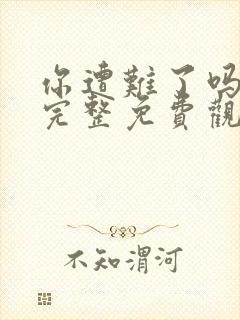 你遭難了吗
完整免費觀
不知渭河